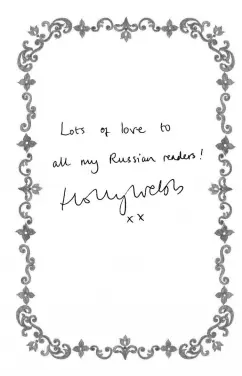 Lots of love to
all my Russian readers!
Holly Webb
x x